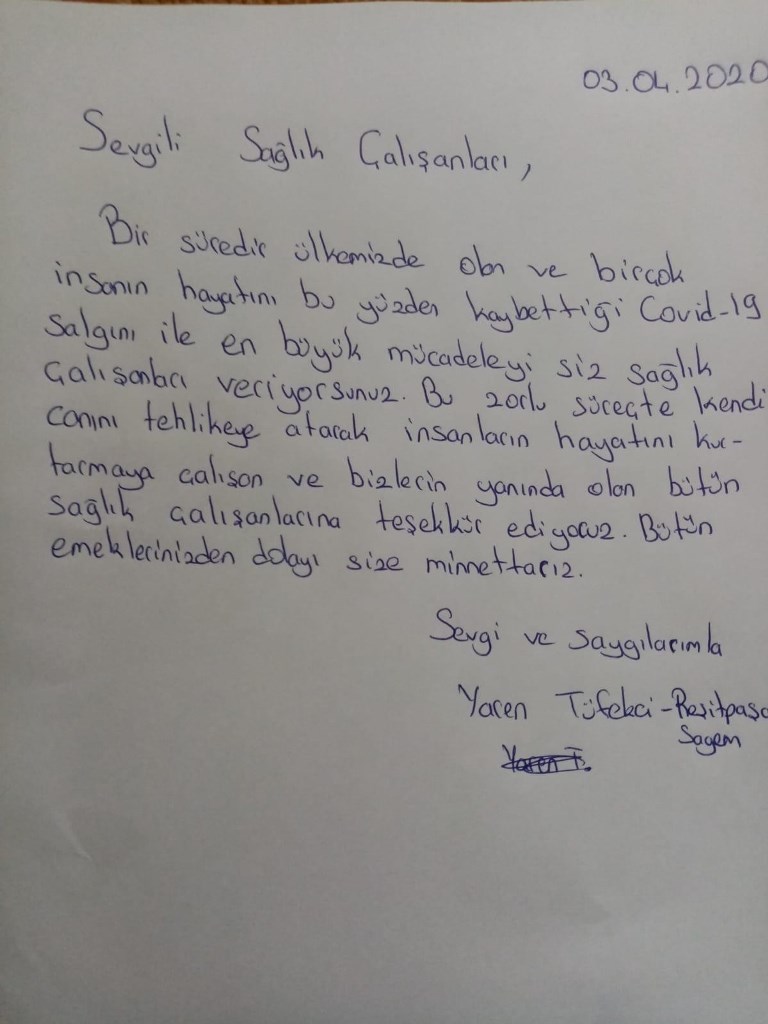 03.04.2020
Sevgili Sağlık Çalışanları,
Bir süredir ülkemizde olan ve birçok
insanın hayatını bu yüzden kaybettiği Covid-19
salgını ile en büyük mücadeleyi siz sağlık
çalışanları veriyorsunuz. Bu zorlu süreçte kendi
canını tehlikeye atarak insanların hayatını kur-
tarmaya çalışan ve bizlerin yanında olan bütün
sağlık çalışanlarına teşekkür ediyoruz. Bütün
emeklerinizden dolayı size minnettarız.
Sevgi ve saygılarımla
Yaren Tüfekci-Reşitpaşa
Sagem
Yaren T.